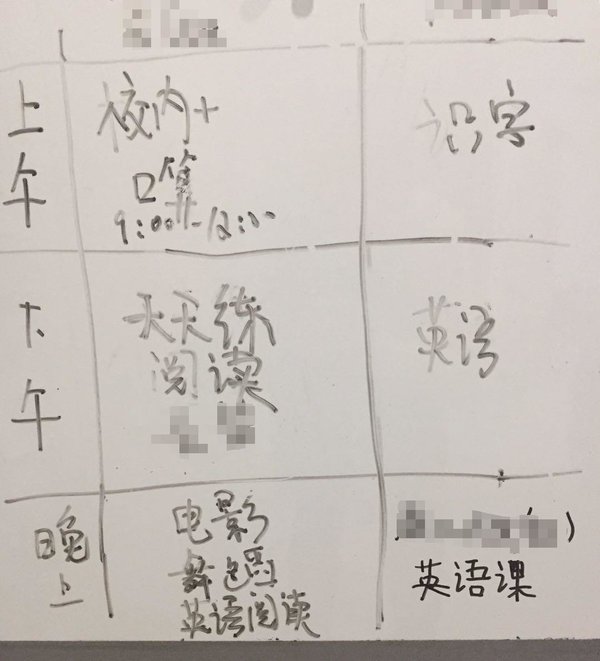 上午
校内+
口算
9:00-12:00
识字
下午
天天练
阅读
英语
晚上
电影
舞蹈
英语阅读
)
英语课